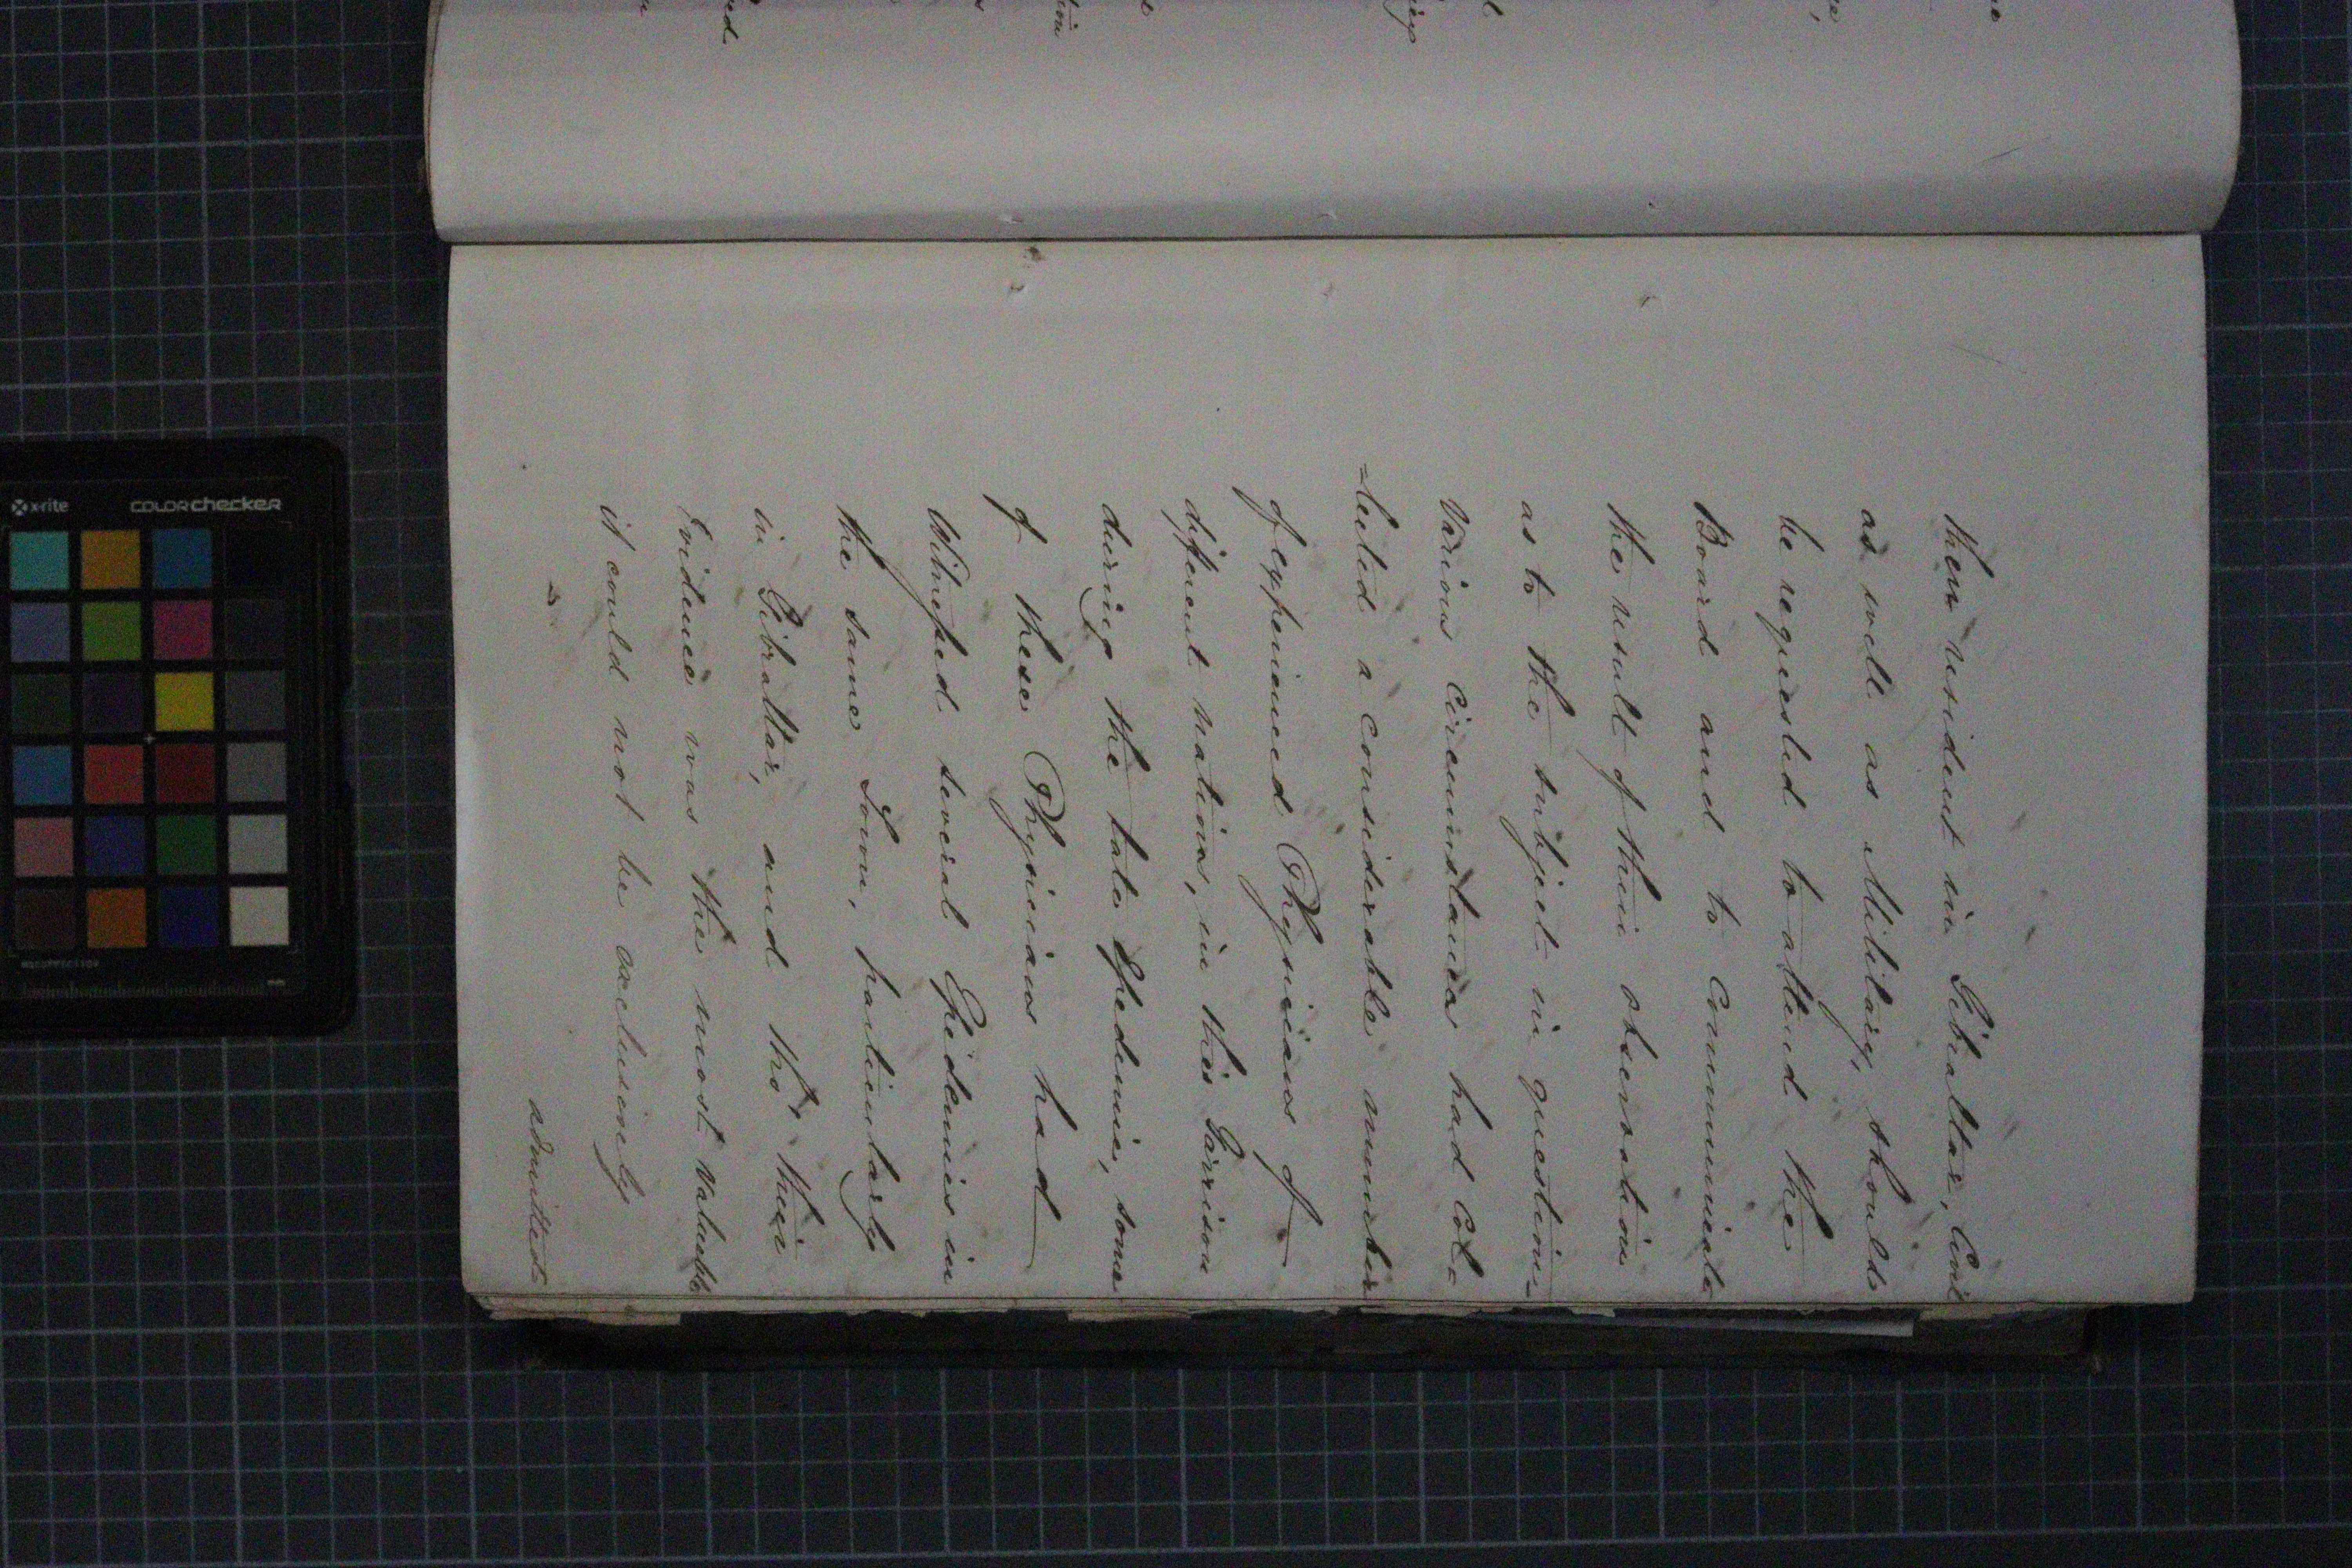 then resident in Gibraltar, Civil
as well as Military, should
be requested to attend the
Board and to Communicate
the result of their observation
as to the subject in question_
Various Circumstances had Col=
=lected a considerable number
of experienced Physicians of
different nations, in this Garrison
during the late Epedemic, some
of these Physicians had
Witnessed several Epidemics in
the same Town, particularly
in Gibraltar, and tho' their
Evidence was the most valuable
it could not be exclusively
admitted
x-rite
COLORchecker